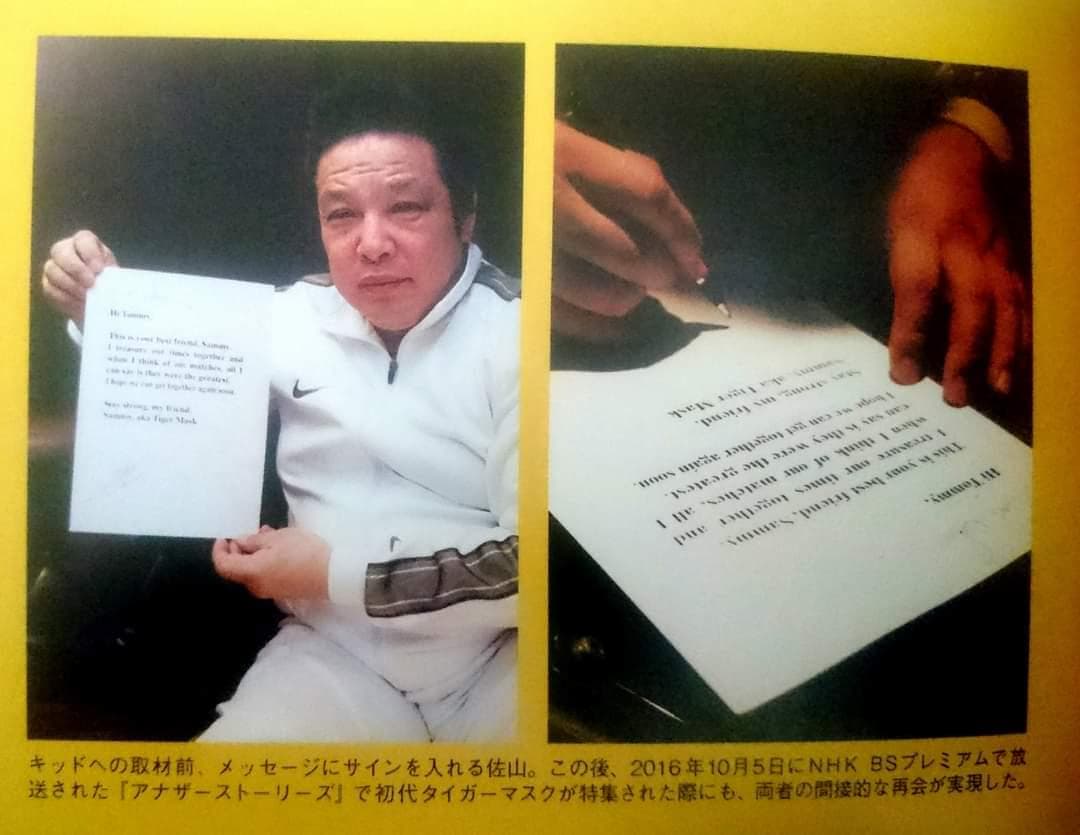 Hi Tommy,
This is your best friend, Sammy.
I treasure our times together and
when I think of our matches, all I
can say is they were the greatest.
I hope we can get together again soon.
Stay strong, my friend.
Sammy, aka Tiger Mask
Hi Tommy,
This is your best friend, Sammy.
I treasure our times together and
when I think of our matches, all I
can say is they were the greatest.
I hope we can get together again soon.
Stay strong, my friend.
Sammy, aka Tiger Mask
キッドへの取材前、メッセージにサインを入れる佐山。この後、2016年10月5日にNHK BSプレミアムで放
送された『アナザーストーリーズ』で初代タイガーマスクが特集された際にも、両者の間接的な再会が実現した。